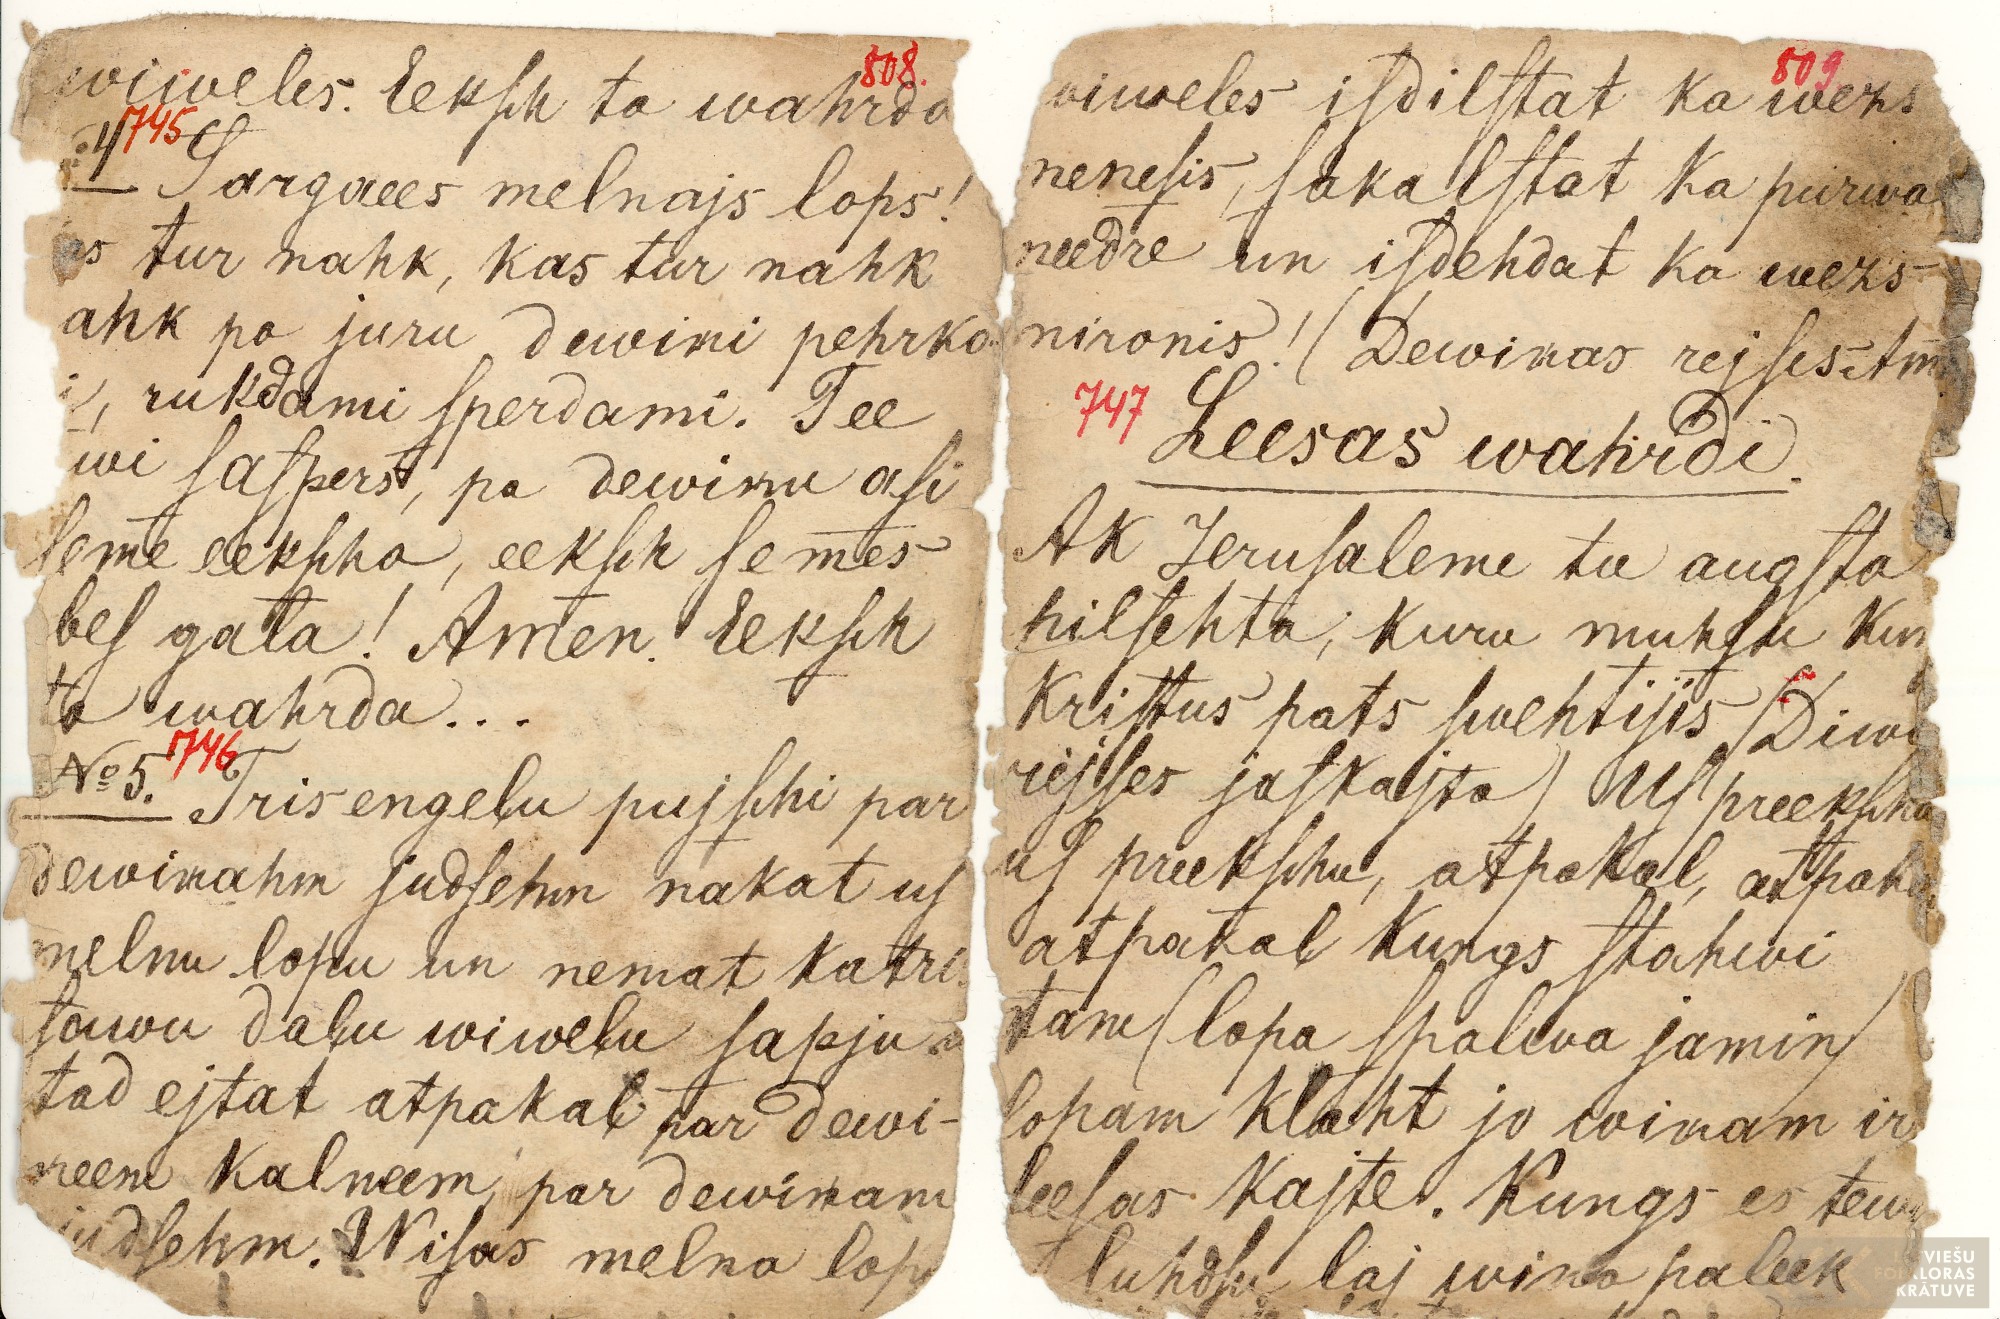 808.
wiweles. Eeksch ta wahrda
№4 745 Sargaees melnajs lops!
tur nahk, kas tur nahk
ahk pa juru dewini pehrko-
rukdami sperdami. Tee
wi saspers, pa dewinu asi
seme eekscha, eeksch semes
bes gala! Amen. Eeksch
ta wahrda...
№ 5. 746 Tris engelu pujschi par
dewinahm judsehm nakat us
melnu lopu un nemat katris
sawu dalu wiwelu sapju
tad ejtat atpakal par dewi-
neem kalneem, par dewinam
judsehm. Wisas melna lopa
809
wiweles isdilstat ka wezs
menesis, sakalstat ka purwa
needre un isdehdat ka wezs
mironis! (Dewinas rejses Am
747 Leesas wahrdi.
Ak Jerusaleme tu augsta
pilsehta, kuru muhsu Kun
Kristus pats swehtijis (Diwi
rejses jaskajta) Us preekschu
us preekschu, atpakal, atpaka
atpakal Kungs stahwi
tam (lopa spalwa jamin)
lopam klaht jo winam ir
leesas kajte. Kungs es tewi
luhdsu laj wina paleek
LATVIEŠU
FOLKLORAS
KRĀTUVE